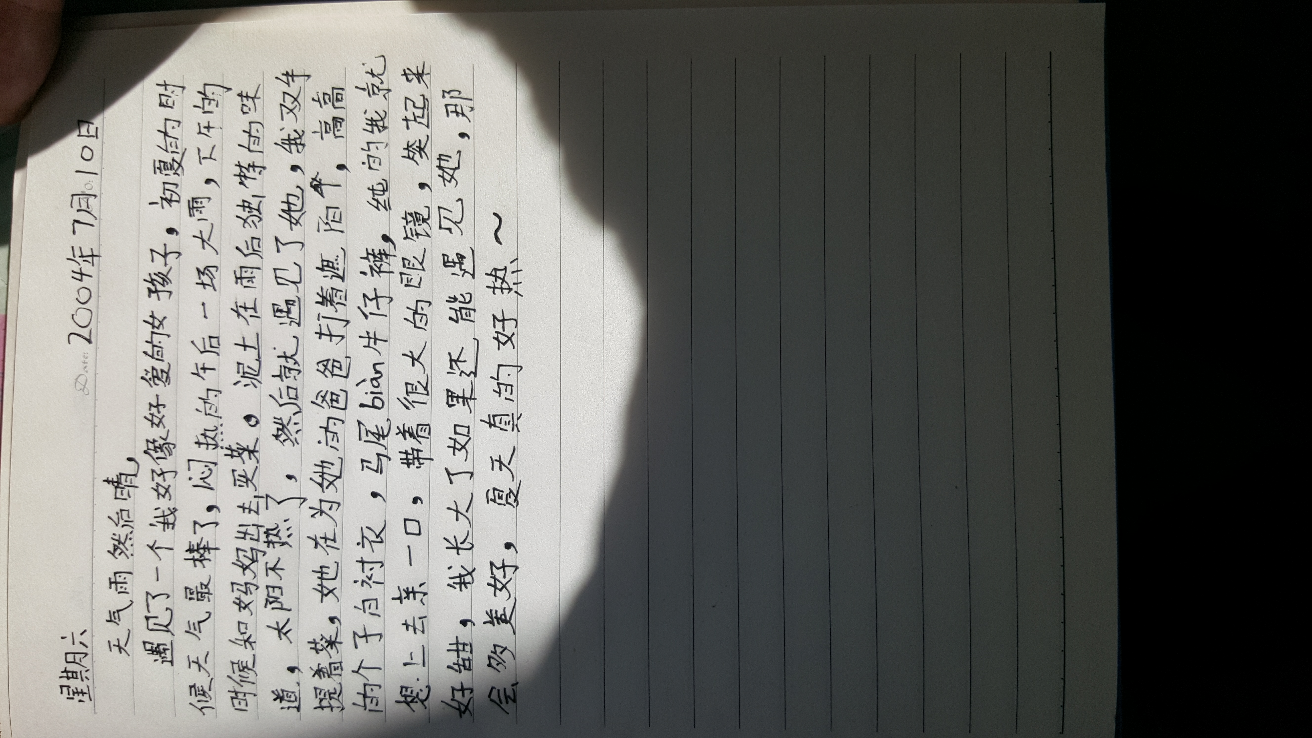 星期六 Date: 2004年7月10日
天气雨然后晴,
遇见了一个我好像好爱的女孩子，初夏的时
候天气最棒了，闷热的午后一场大雨，下午的
时候和妈妈出去买菜。泥土在雨后独特的味
道，太阳不热了，然后就遇见了她，我双手
提着菜，她在为她的爸爸打着遮阳伞，高高
的个子白衬衣，马尾biàn牛仔裤，纯的我就
想上去亲一口，带着很大的眼镜，笑起来
好甜，我长大了如果还能遇见她，那
会多美好，夏天真的好热～